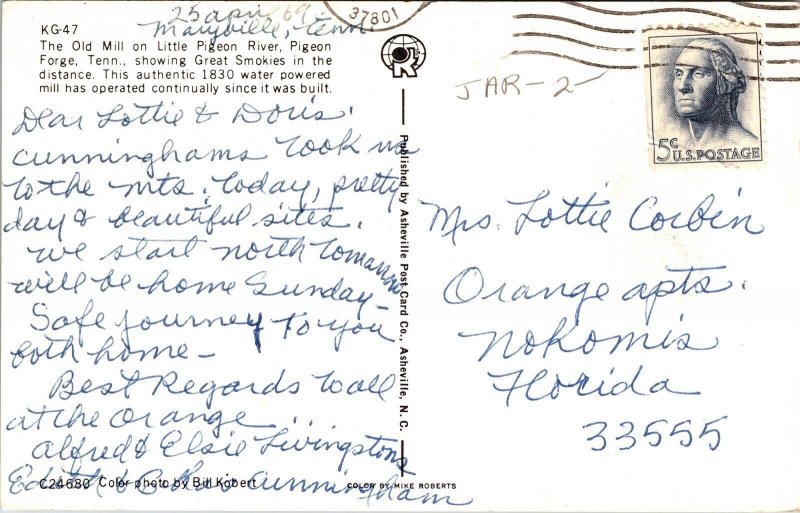 25 apr 69
Maryville, Tenn.
37801
KG-47
The Old Mill on Little Pigeon River, Pigeon
Forge, Tenn., showing Great Smokies in the
distance. This authentic 1830 water powered
mill has operated continually since it was built.
JAR-2-
5¢ U.S. POSTAGE
Dear Lottie & Doris.
Cunninghams took us
to the mts. today, pretty
day & beautiful sites.
We start north tomorrow
will be home Sunday-
Safe journey to you
both home-
Best Regards to all
at the Orange.
Alfred & Elsie Livingstons
Edith & Cunningham
Published by Asheville Post Card Co., Asheville, N. C.
Mrs. Lottie Corbin
Orange apts.
Nokomis
Florida
33555
C24680 Color photo by Bill Kobert
COLOR BY MIKE ROBERTS